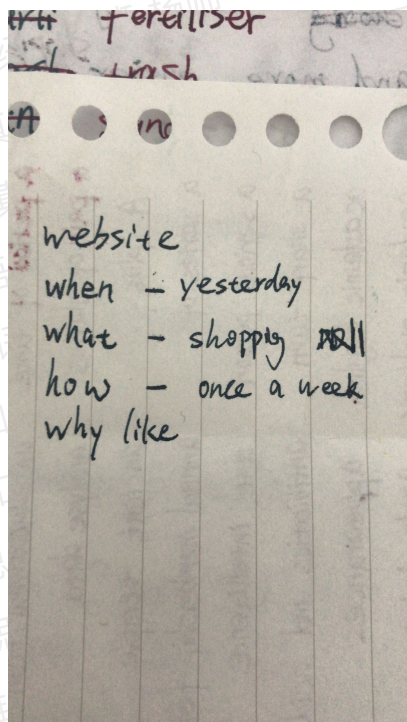 fertiliser
trash
and move
website
when - yesterday
what - shoppig
how - once a week
why like